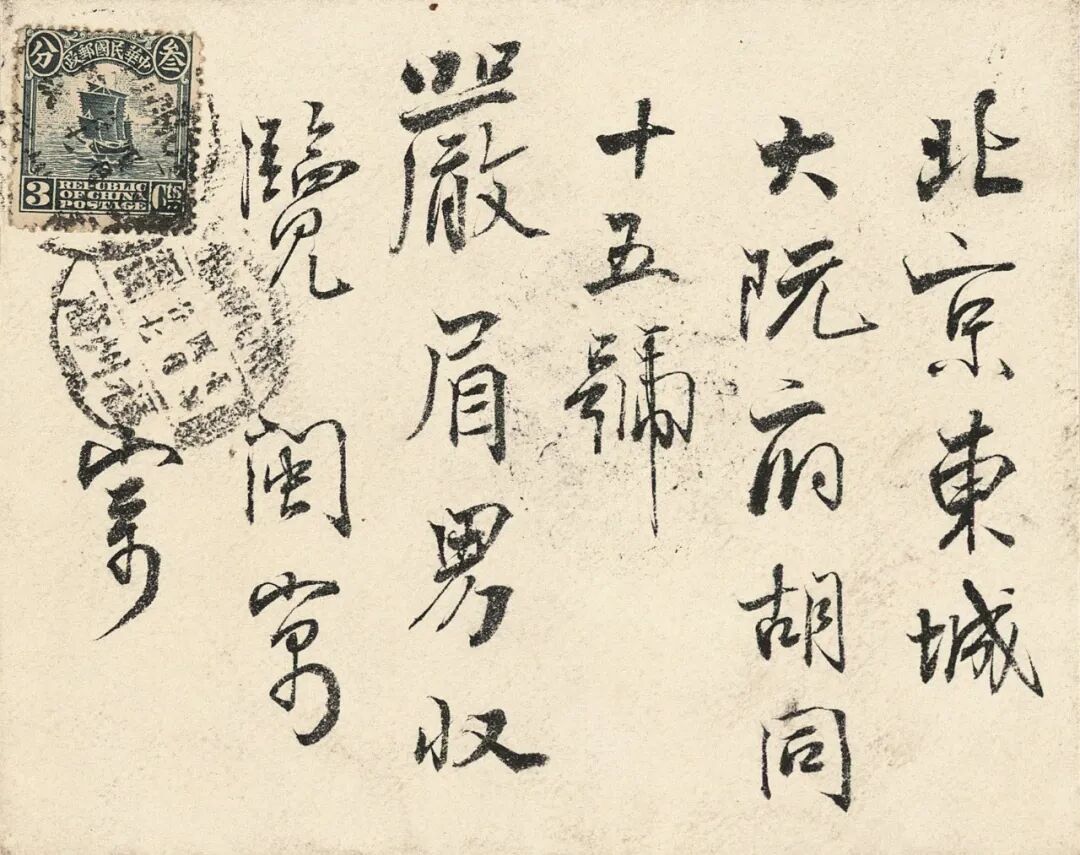 北京東城
大阮府胡同
十五號
嚴眉男收
覽 閩寓
寄
中華民國郵政
叁分
3 REPUBLIC OF CHINA POSTAGE CTS